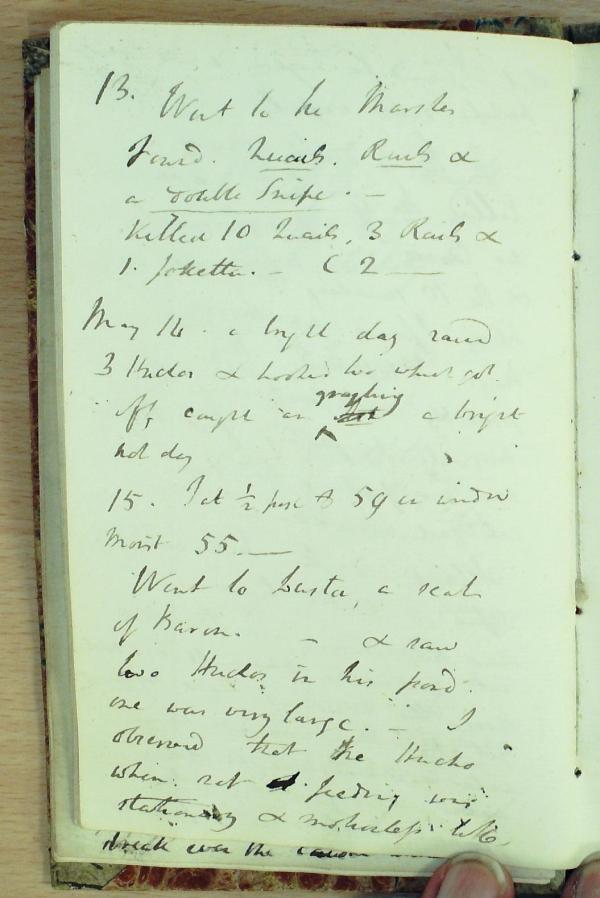 13. Went to the Marshes
found. Quails. Rails &
a double Snipe. —
Killed 10 Quails, 3 Rails &
1. —
May 14. a bright day raised
3 Hucho & hooked two which got
off, caught a grayling a bright
hot day
15. at ½ past 59 in window
moist 55. —
Went to Lusta, a seat
of Baron. — & saw
two Huchos in his pond.
one was very large. — I
observed that the Hucho
when not feeding was
stationary & motionless
the